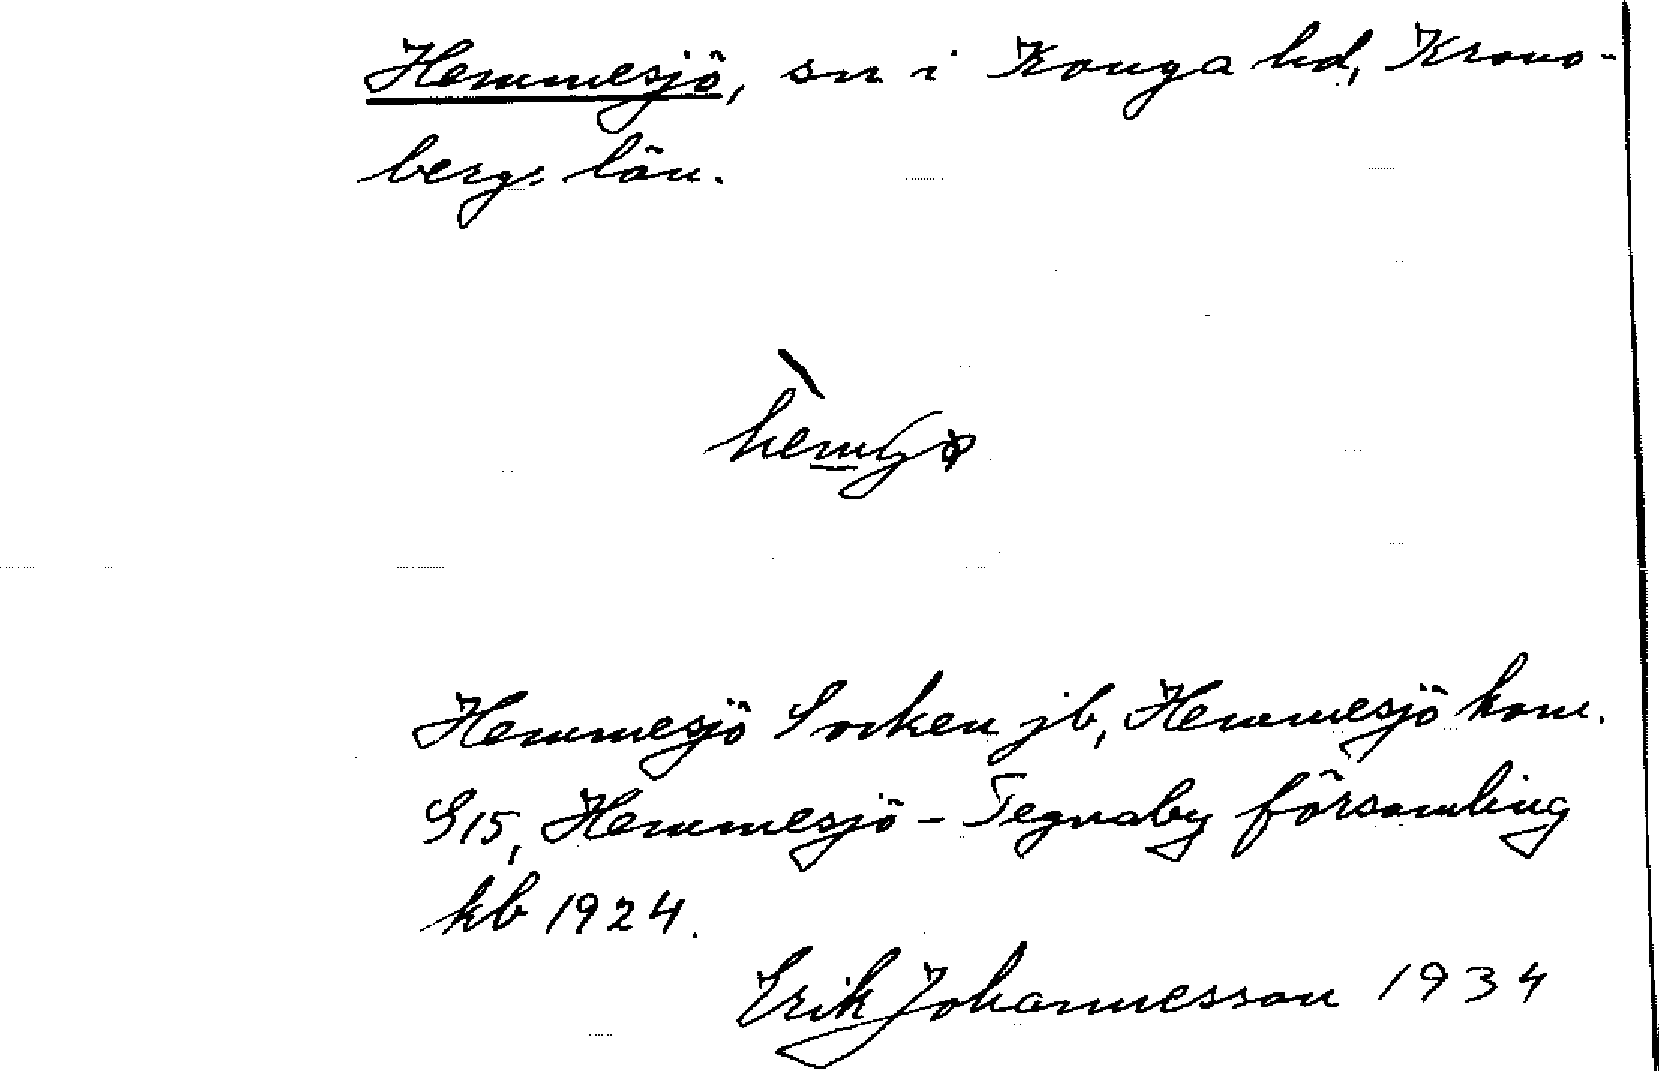 Hemmesjö, sn i Konga hd, Krono-
bergs län.
Hemmesjö Socken jb, Hemmesjö kom.
S15, Hemmesjö - Tegnaby församling
kb 1924.
Erik Johannesson 1934